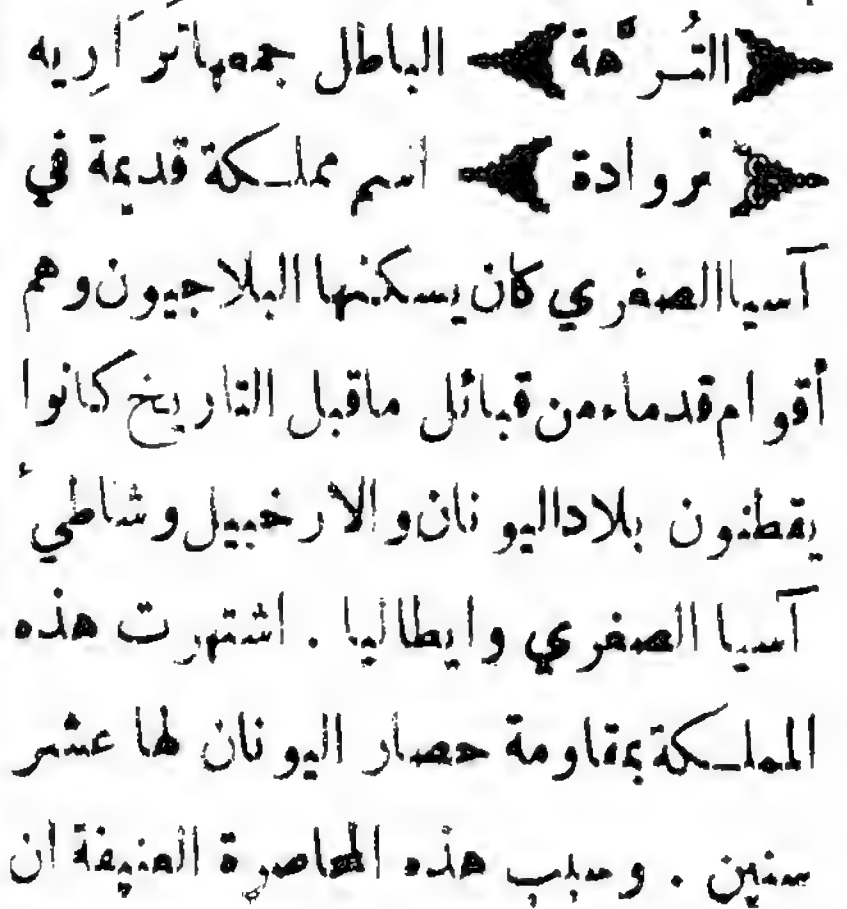 ﴿التُرَّهة﴾ الباطل جمعها تَرَارِيه
﴿تروادة﴾ اسم مملكة قديمة في
آسيا الصغري كان يسكنها البلاجيون وهم
أقوام قدماء من قبائل ماقبل التاريخ كانوا
يقطنون بلاد اليونان والارخبيل وشاطئ
آسيا الصغري وايطاليا . اشتهرت هذه
المملكة بمقاومة حصار اليونان لها عشر
سنين . وسبب هذه المحاصرة العنيفة ان